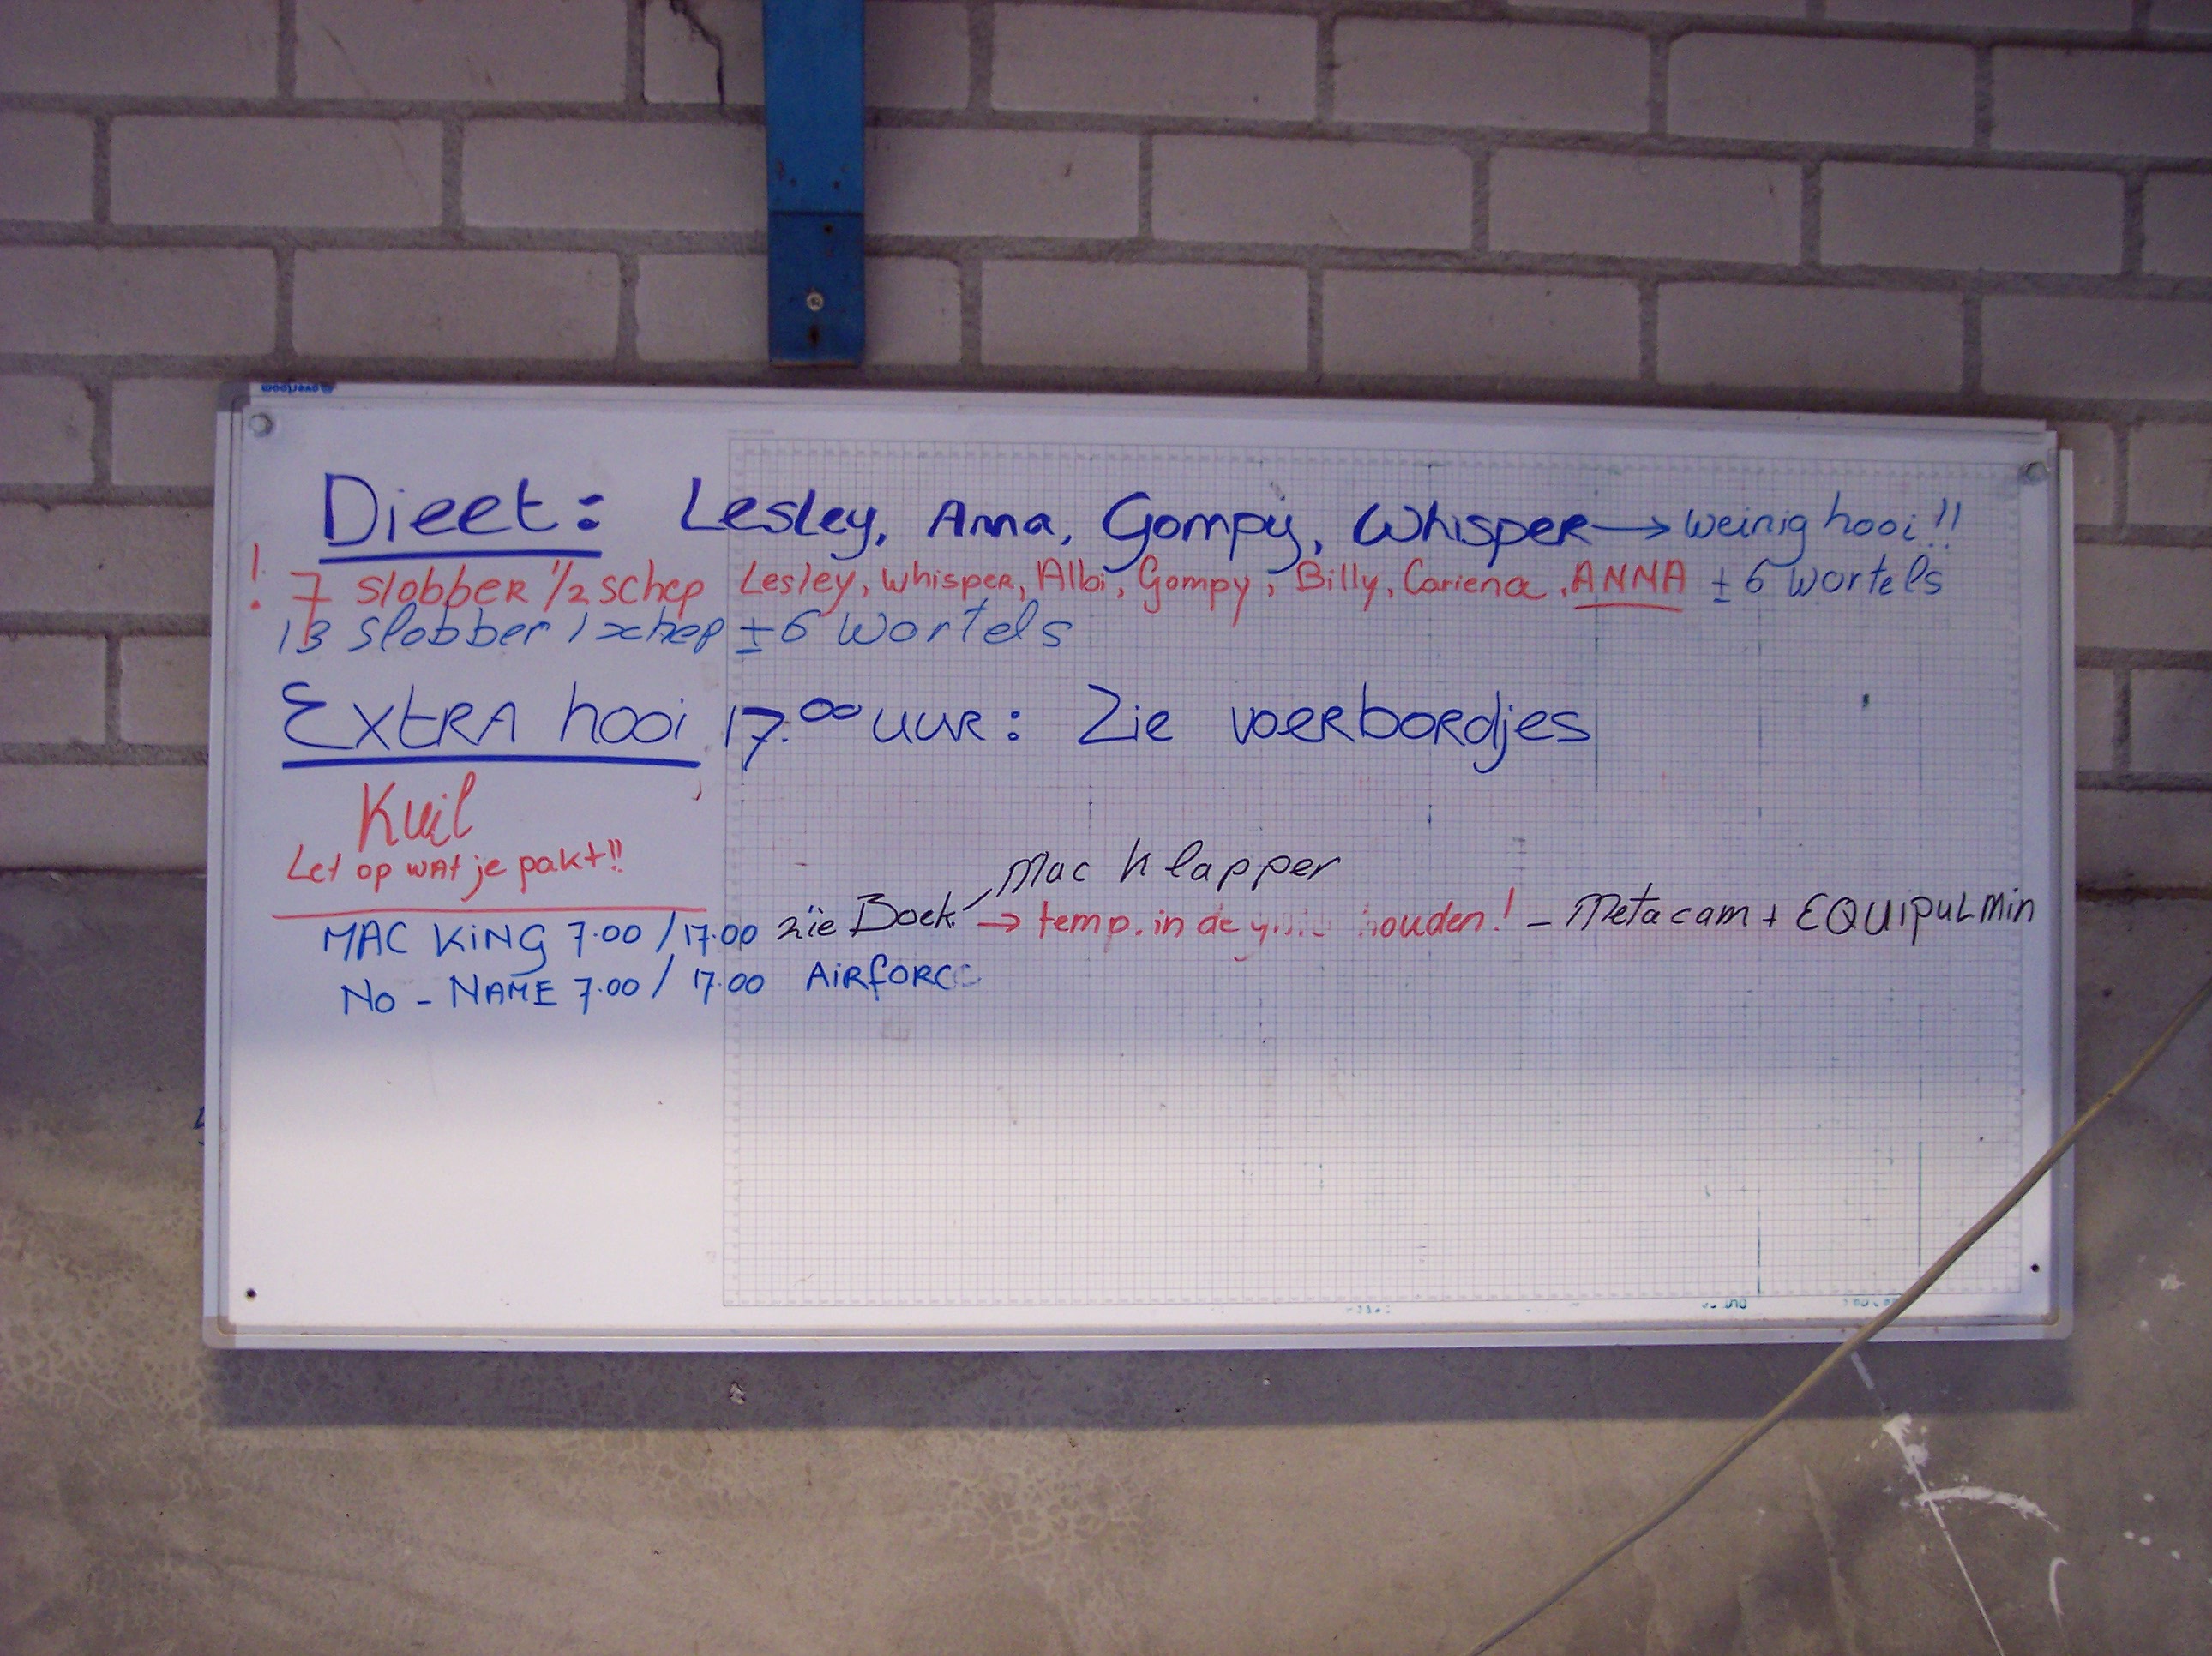 Dieet: Lesley, Anna, Gompy, Whisper → weinig hooi!!
! 7 slobber 1/2 schep Lesley, Whisper, Albi, Gompy, Billy, Cariena, ANNA ± 6 wortels
13 slobber 1 schep ± 6 wortels
Extra hooi 17.00 uur: Zie voerbordjes
Kuil
Let op wat je pakt!!
Mac Klapper
MAC KING 7.00 / 17.00 zie Boek → temp. in de houden! - Metacam + EQUIPULMIN
No - NAME 7.00 / 17.00 AiRfORCE